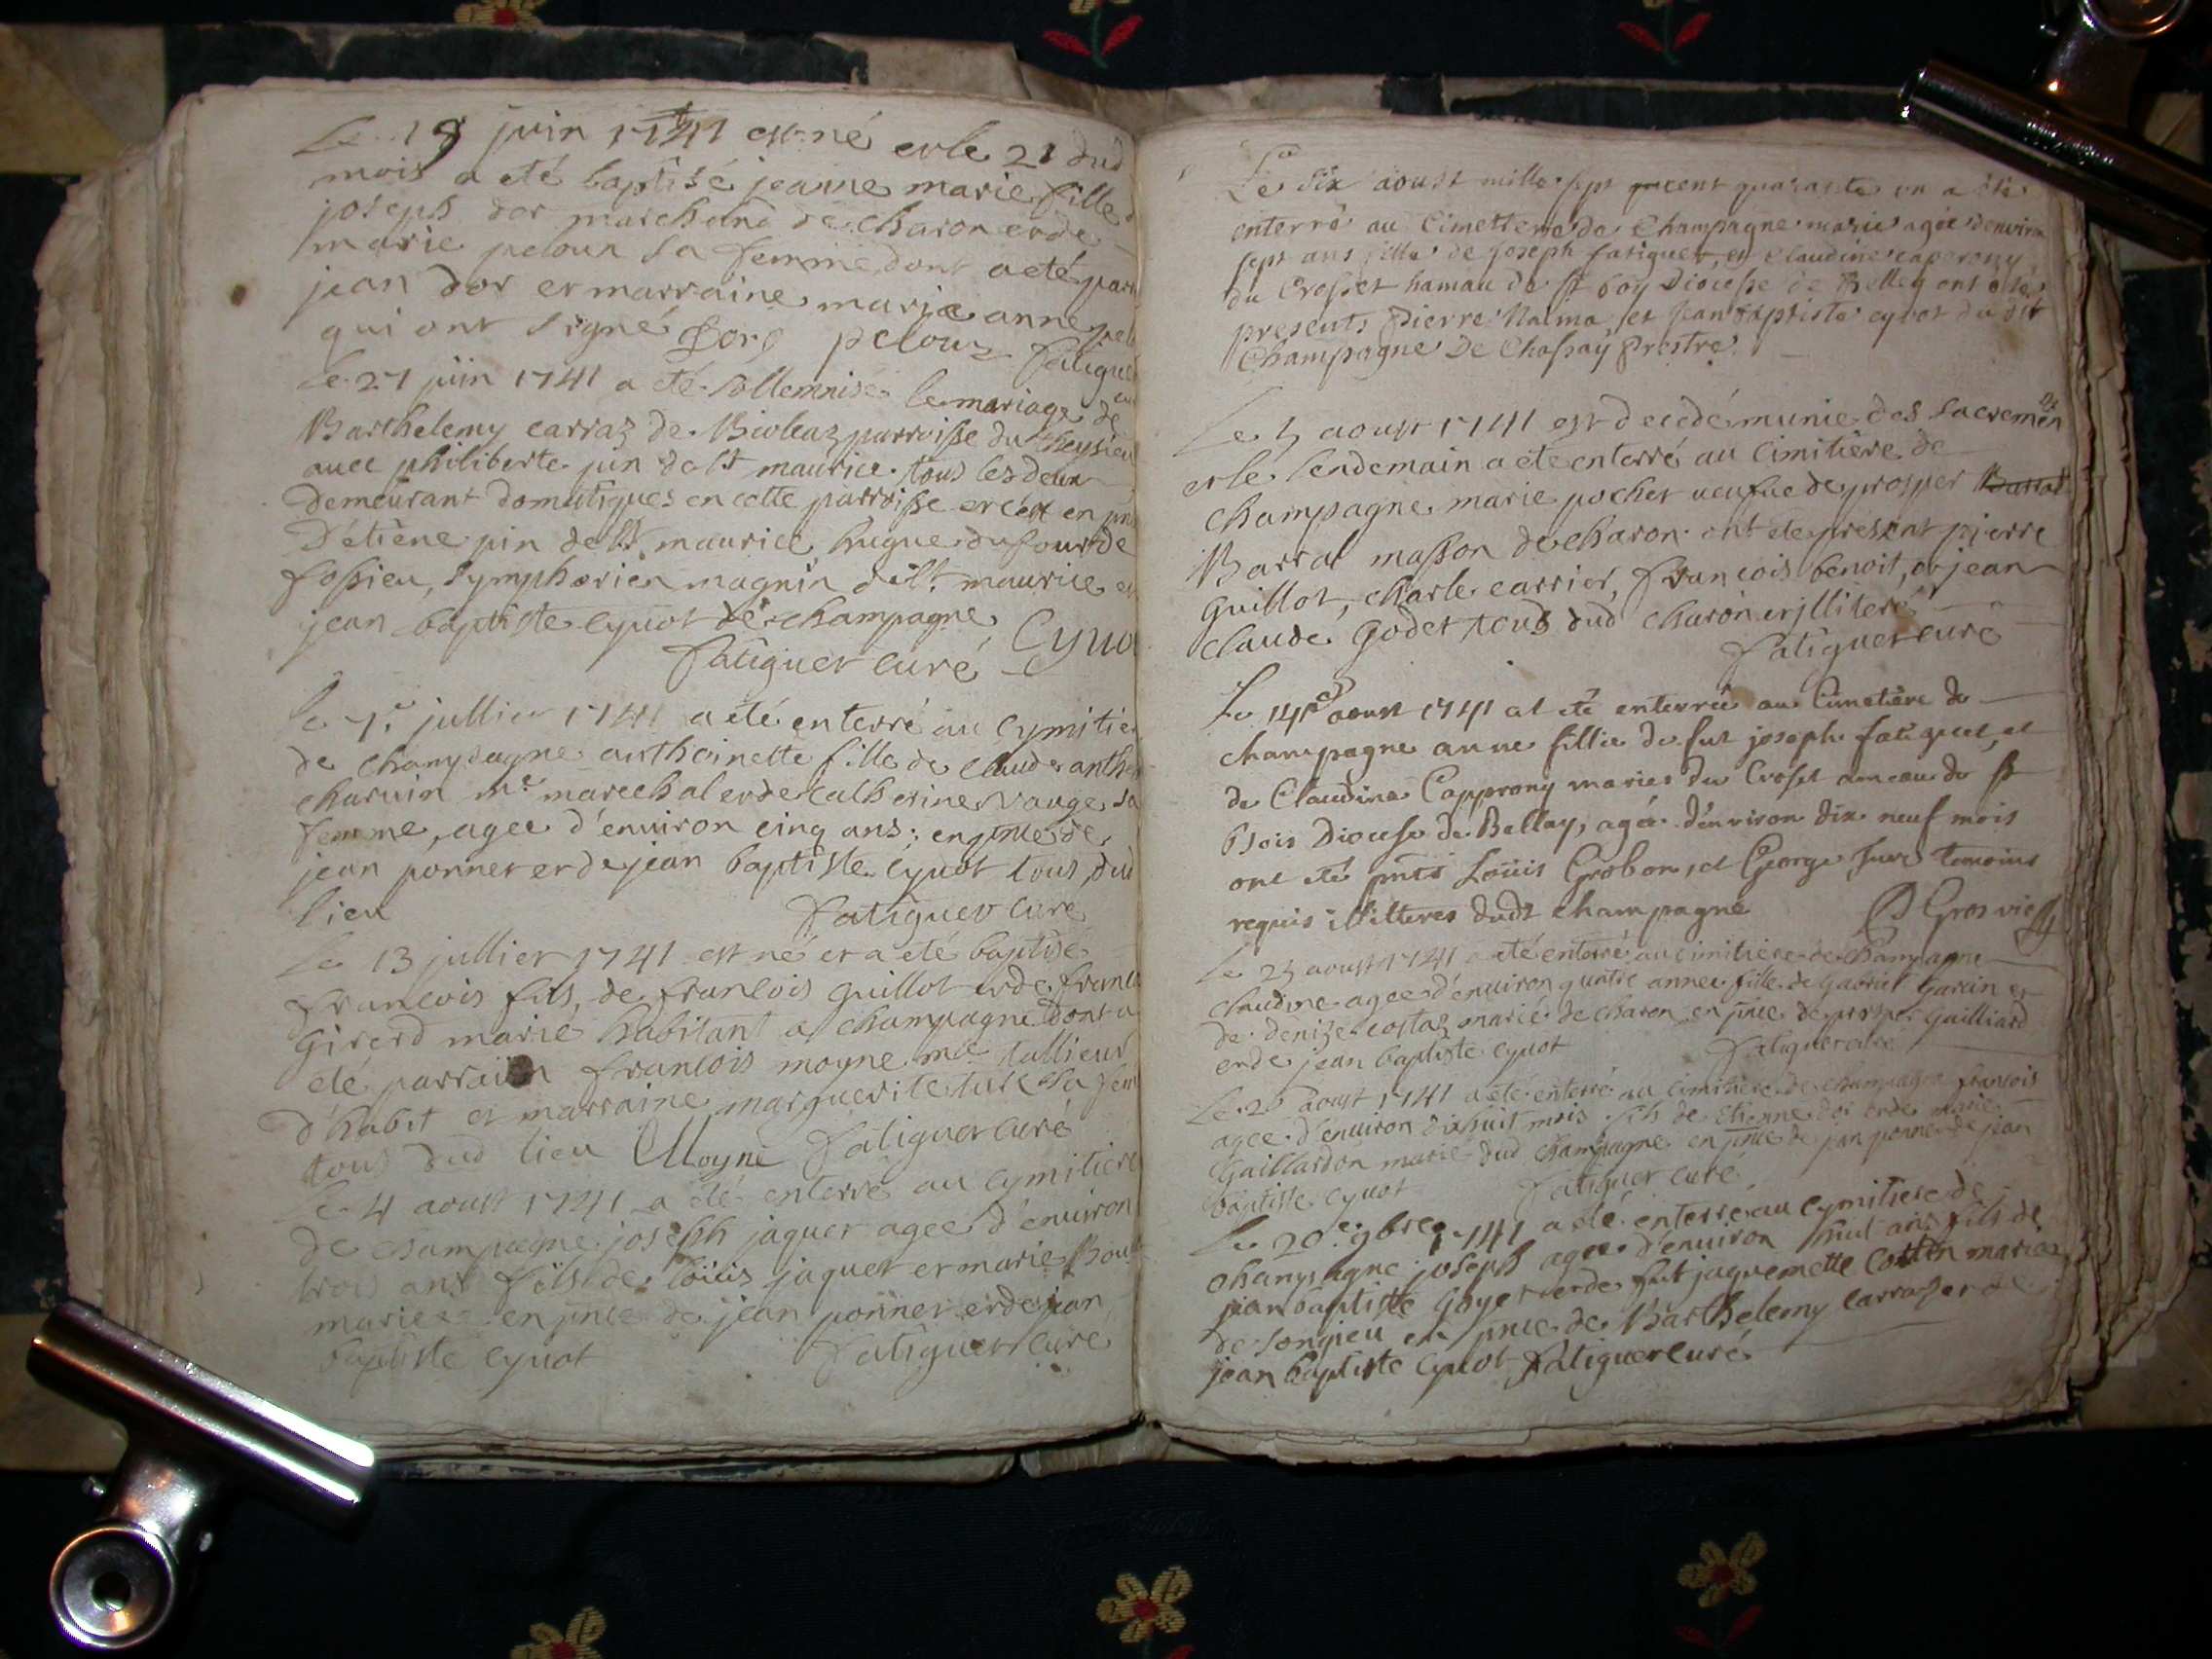 Le 19 juin 1741 est né et le 21 dud
mois a eté baptisé jeanne marie fille
joseph dor marchand de charon et de
marie peloux sa femme, dont a eté parr
jean dor et marraine marie anne pel
qui ont signé Dor peloux fatiguet
Le 27 juin 1741 a eté sollemnisé le mariage de
Barthelemy carraz de Bioleaz parroisse du cheysieu
avec philiberte pin de st maurice tous les deux
demeurant domestiques en cette parroisse et c'est en
D'étiene pin de st maurice, hugue dufour de
fossieu, symphorien magnin de st maurice et
jean baptiste cyvot de champagne
fatiguet curé Cyvo
le 7e jullier 1741 a eté enterré au cymitie
de champagne anthoinette fille de claude anth
charvin me marechal et de catherine vauge sa
femme, agee d'environ cinq ans; en pnce de
jean ponnet et de jean baptiste cyvot tous dud
lieu fatiguet curé
Le 13 jullier 1741 est né et a eté baptisé
francois fils de francois guillot et de franc
Girerd marié habitant a champagne dont a
eté parrain francois moyne me tallieur
d'habit et marraine marguerite sa fem
tous dud lieu Moyne fatiguet curé
Le 4 aoust 1741 a eté enterré au cymitiere
de champagne joseph jaquet agee d'environ
trois ans fils de loüis jaquet et marie
mariee en pnce de jean ponnet et de jean
baptiste cyvot fatiguet curé
Le Six aoust mille sept cent quarante un a été
enterré au Cimettiere de Champagne marie agée denviron
sept ans fille de Joseph fatiguet, et Claudine caperony
du Crosset hamau de st boy Diocesse de Belley ont été
presents Pierre et Jean Baptiste cyvot du dit
Champagne De Chassaÿ Prestre.
Le 5 aoust 1741 est decedé munie des sacremen
et le lendemain a eté enterré au cimitière de
champagne marie pochet veufue de prosper Barral
Barral masson de charon ont eté present pierre
guillot, charle carrier, francois benoit, et jean
claude godet tous dud charon et jlliteré
fatiguet curé
Le 14e aoust 1741 at eté enterrée au Cimetière de
champagne anne fillie de fut joseph fatiguet, et
de Claudine Capprony maries du Crosset ameau de st
bois Diocese de Bellay, agée d'environ dix neuf mois
ont eté pnts Loüis Grobon, et George temoins
requis illitteres dudt champagne Gros vic
Le 25 aoust 1741 a eté enterré au cimitiere de champagne
claudine agee d'environ quatre annee fille de gabriel garin et
de denize costaz marié de charon en pnce de prosper Gailliard
et de jean baptiste cyvot fatiguet curé
Le 26 aoust 1741 a eté enterré au cimitiere de champagne francois
agee d'environ dixhuit mois fils de Etienne dor et de marie
Gaillardon marié dud champagne en pnce de jean ponnet de jean
baptiste cyvot fatiguet curé
Le 20e 9bre 1741 a eté enterré au cymitiere de
champagne joseph agee d'environ huit ans fils de
jean baptiste Goyet et de fut jaquemette cottin marié
de songieu en pnce de Barthelemy carraz et de
jean baptiste cyvot fatiguet curé